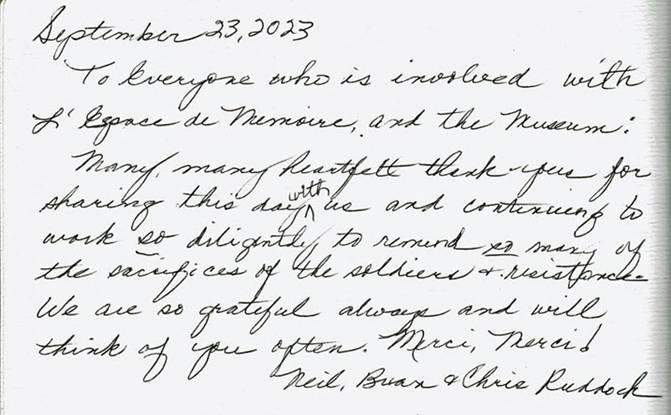 September 23, 2023
To Everyone who is involved with
L' Espace de Memoire, and the Museum:
Many, many heartfelt thank-yous for
sharing this day with us and continuing to
work so diligently to remind so many of
the sacrifices of the soldiers & resistance.
We are so grateful always and will
think of you often. Merci, Merci!
Neil, & Chris Ruddock